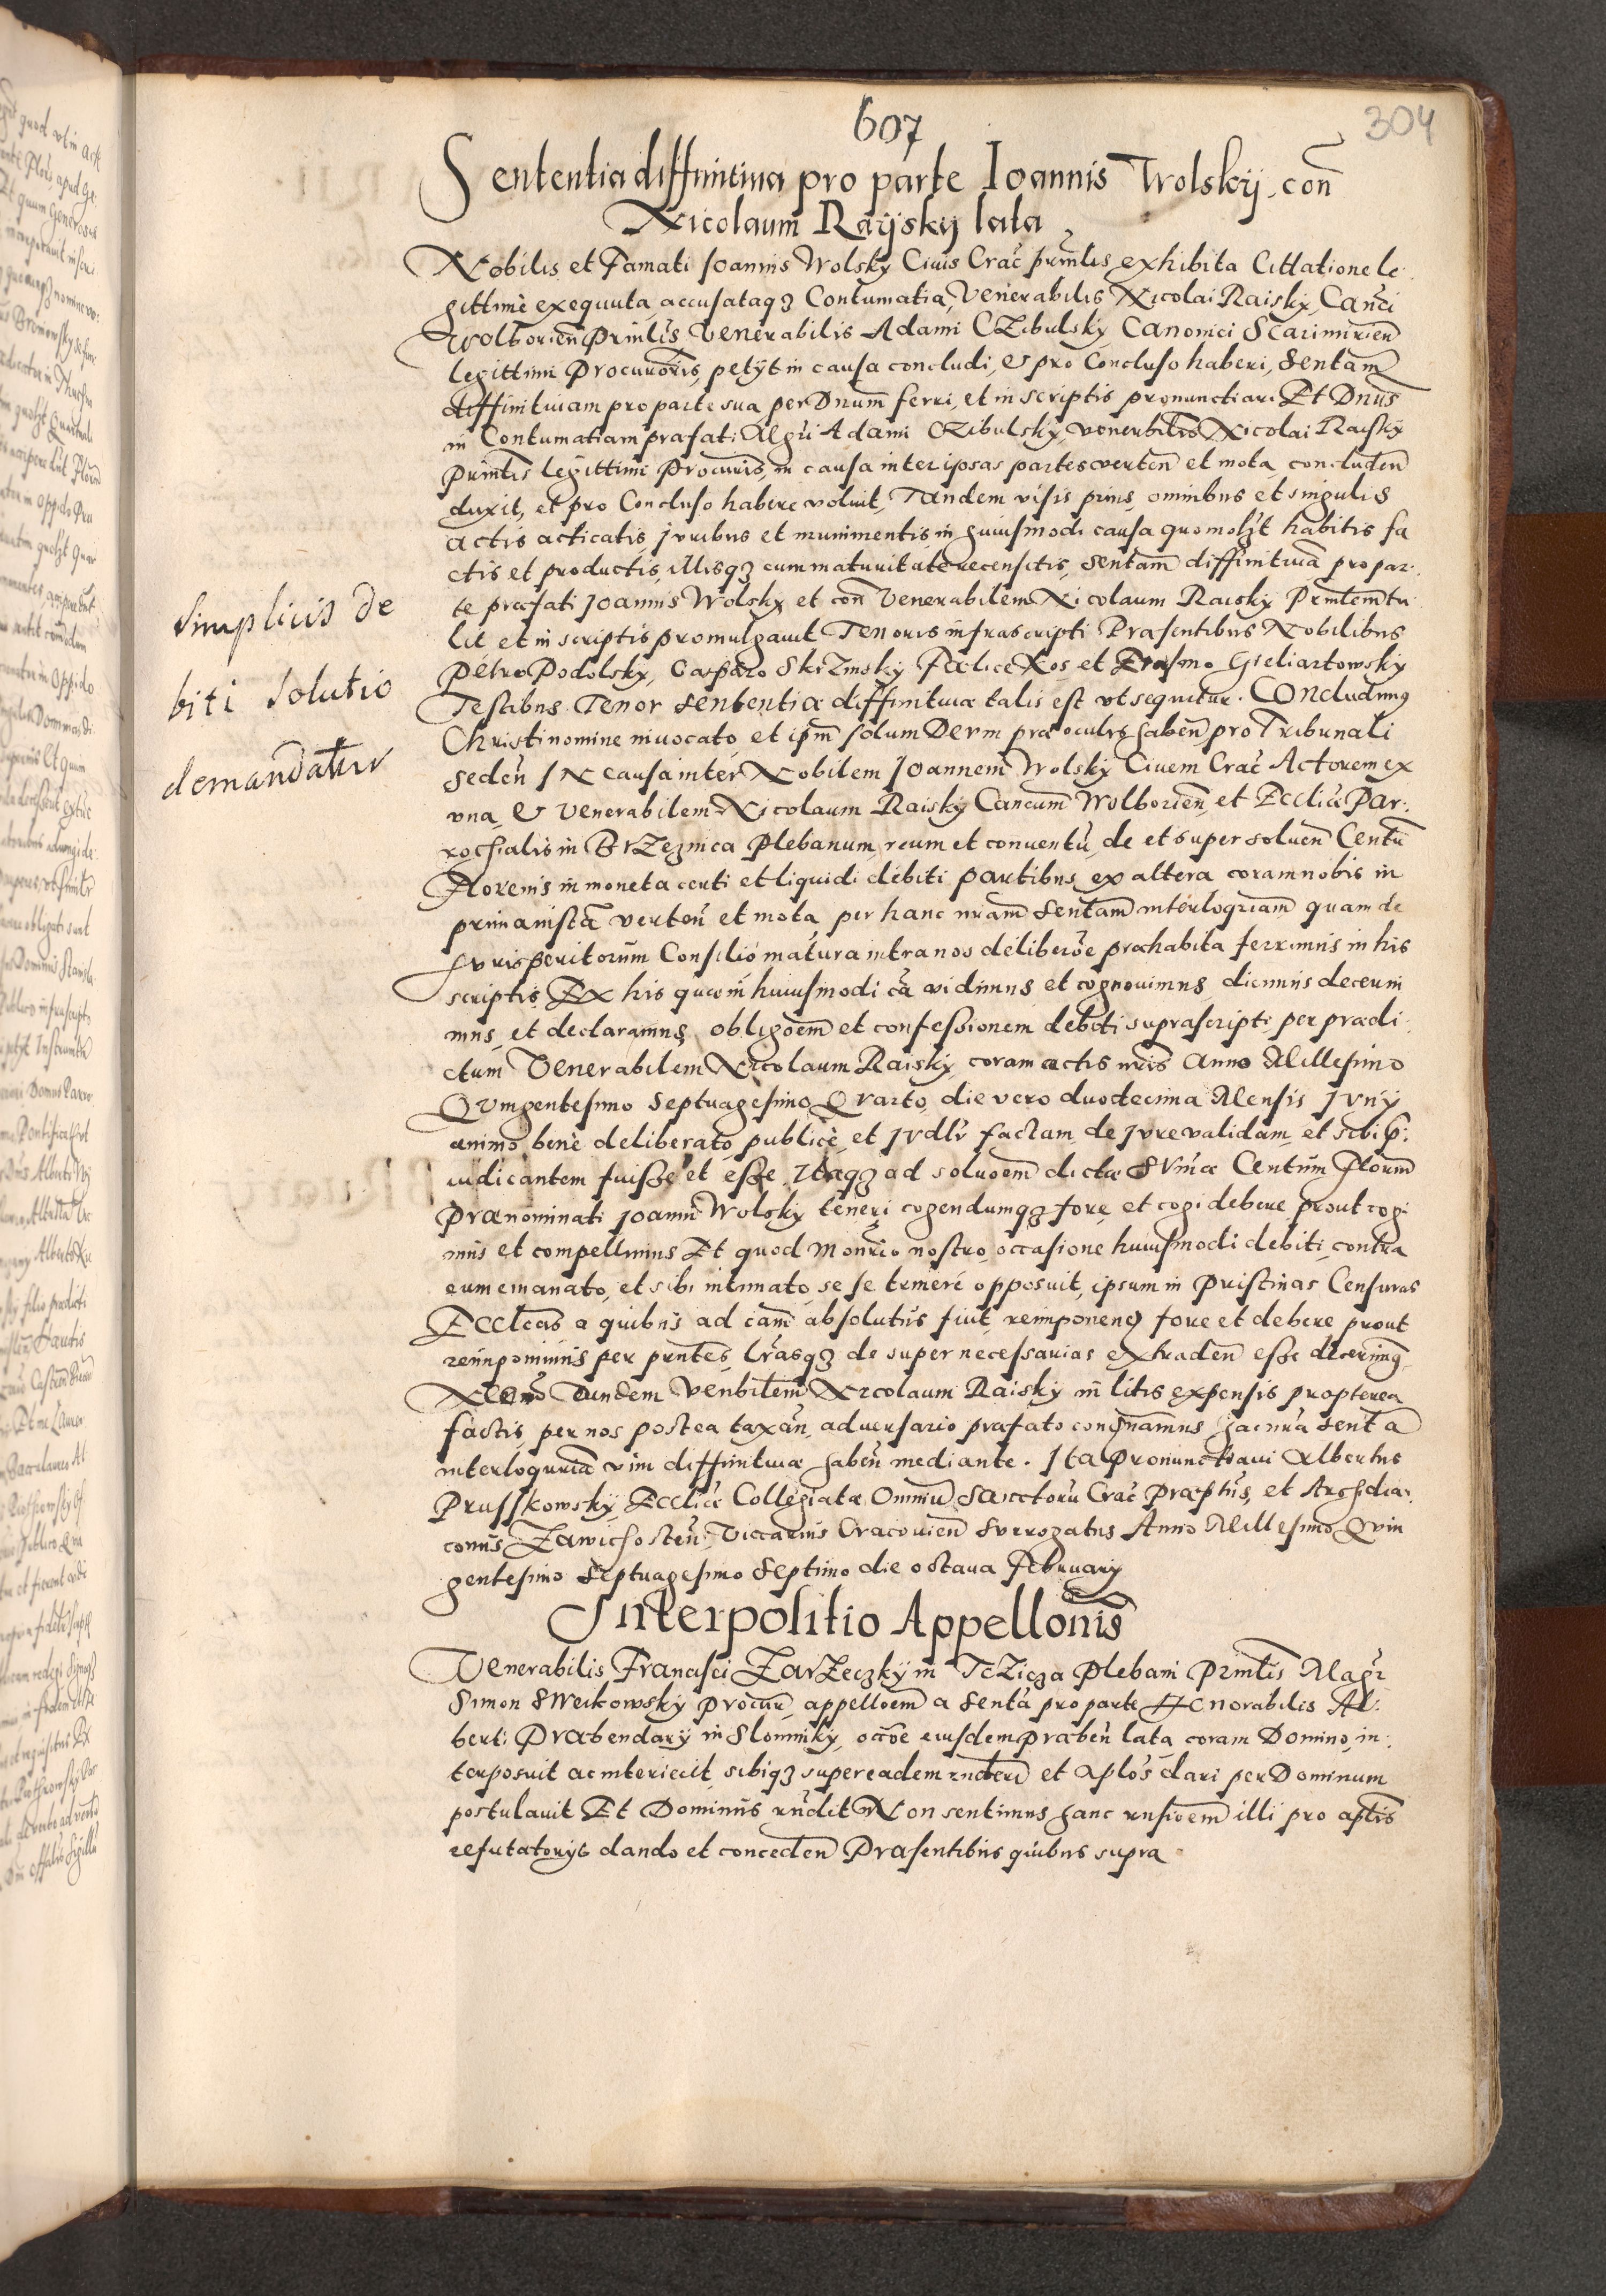 607
304
Sententia diffinitiua pro parte Ioannis Wolskij con̄
Nicolaum Raÿsky lata
Nobilis et Famati Joannis Wolsky Ciuis Crac̄ prn̄tis exhibita Cittatione le
gittimè exequuta, accusataqꝫ Contumatia, Venerabilis Nicolai Raisky, Can̄ci
Wolborien̄ Prin̄lis, Venerabilis Adami CZibulsky Canonici Scarimirien̄
Legittimi Procuroris, petÿt in causa concludi, & pro Concluso haberi, Sentam̄
diffinitiuam pro parte sua per Dnum̄ ferri, et in scriptis pronunctiari Et Dnus̄
in Contumatiam præfati Mgri Adami CZibulsky, venerbilis Nicolai Raisky
prn̄tis legittimi Procuris, in causa inter ipsas partes verten̄ et mota, concluden̄
duxit, et pro Concluso habere voluit, Tandem visis prius, omnibus et singulis
actis acticatis, Juribus et munimentis, in huiusmodi causa quomolꝫt habitis fa
ctis et productis, illisqꝫ cum maturitate recensitis, Sentam̄ diffinitiuā pro par:
te præfati Joannis Wolsky et con̄ Venerabilem Nicolaum Raisky Prn̄tem tu
lit et in scriptis promulgauit Tenoris infrascripti Præsentibus Nobilibus
Petro Podolsky, Casparo SkrZinsky Fælice Kos et Erasmo Gieliartowsky
Testibus. Tenor Sententiæ diffinitiuæ talis est vt sequitur. Concludimꝰ
Christi nomine inuocato, et ipm̄ solum Deum præ oculis haben̄ pro Tribunali
seden̄ IN causa inter Nobilem Joannem Wolsky Ciuem Crac̄ Actorem ex
vna, & Venerabilem Nicolaum Raisky Cancum̄ Wolborien̄, et Ecclīæ Par:
rochialis in BrZeznica Plebanum, reum et conuentū, de et super soluen̄ Centū
Florenis in moneta certi et liquidi debiti partibus, ex altera coram nobis in
prima instā verten̄ et mota, per hanc nram̄ Sentam̄ interloqriam̄ quam de
Jurisperitorum Consilio matura intra nos deliberōe præhabita ferrimus in his
scriptis, Ex his quæ in huiusmodi cā vidimus et cognouimus, dicimus decerni
mus, et declaramus, obligōem et confessionem debiti suprascripti, per prædi
ctum Venerabilem Nicolaum Raisky, coram actis nris Anno Millesimo
Quingentesimo Septuagesimo Quarto, die vero duodecima Mensis Juny
animo bene deliberato, publicè, et Judlr̄ factam, de Jure validam, et sibi p̱:
iudicantem fuisse et esse, Itaqꝫ ad soluōem dictæ Sum̄æ Centum Florum̄
Prænominati Joanni Wolsky teneri cogendumqꝫ fore, et cogi debere, prout cogi
mus et compellimus Et quod Monrio nostro, occasione huiusmodi debiti, contra
eum emanato, et sibi intimato, se se temerè opposuit, ipsum in Pristinas Censuras
Eccleās a quibus ad cām absolutus fuit, reimponenꝰ fore et debere prout
reimponimus per prntes, Lrasqꝫ de super necessarias extraden̄ esse decernimꝰ
Tandem Venbilem Nicolaum Raisky in litis expensis propterea
factis, per nos postea taxan̄, aduersario præfato condemnamus hac nrā Sentā
interloqutriā vim diffinitiuæ haben̄ mediante. Ita Pronunctiaui Albertus
Prusskowsky, Ecclīæ Collegiatæ Omniū Sanctorū Crac̄ Præptus, et Archidia:
conus Zawichosten̄, Viccarius Cracouien̄ Surrogatus Anno Millesimo Quin
gentesimo Septuagesimo Septimo die octaua February
Simplicis de
biti solutio
demandatur
Interpolitio Appellonis
Venerabilis Francisci ZarZeczky in TcZicza Plebani Prn̄tis Magr̄
Simon SWeikowsky Procur̄, appellōem a Sentā pro parte Honorabilis Al:
berti Præbendary in Slomniky, occōe eiusdem præben̄ lata, coram Domino, in:
terposuit ac interiecit, sibiqꝫ super eadem rnderi et Aplōs dari per Dominum
postulauit Et Dominus rndit Non sentimus hanc rnsiōem illi pro aplis
refutatorys dando et conceden̄ Præsentibus quibus supra